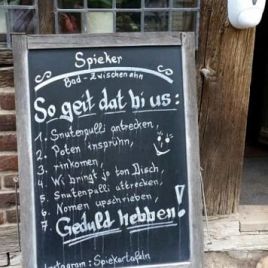 Spieker
Bad-Zwischenahn
So geit dat bi us:
1. Snutenpulli antrecken,
2. Poten insprühn,
3. rinkomen,
4. Wi bringt jo ton Disch,
5. Snutenpulli attrecken,
6. Nomen upschrieben,
7. Geduld hebben!
Instagram: Spiekertafeln